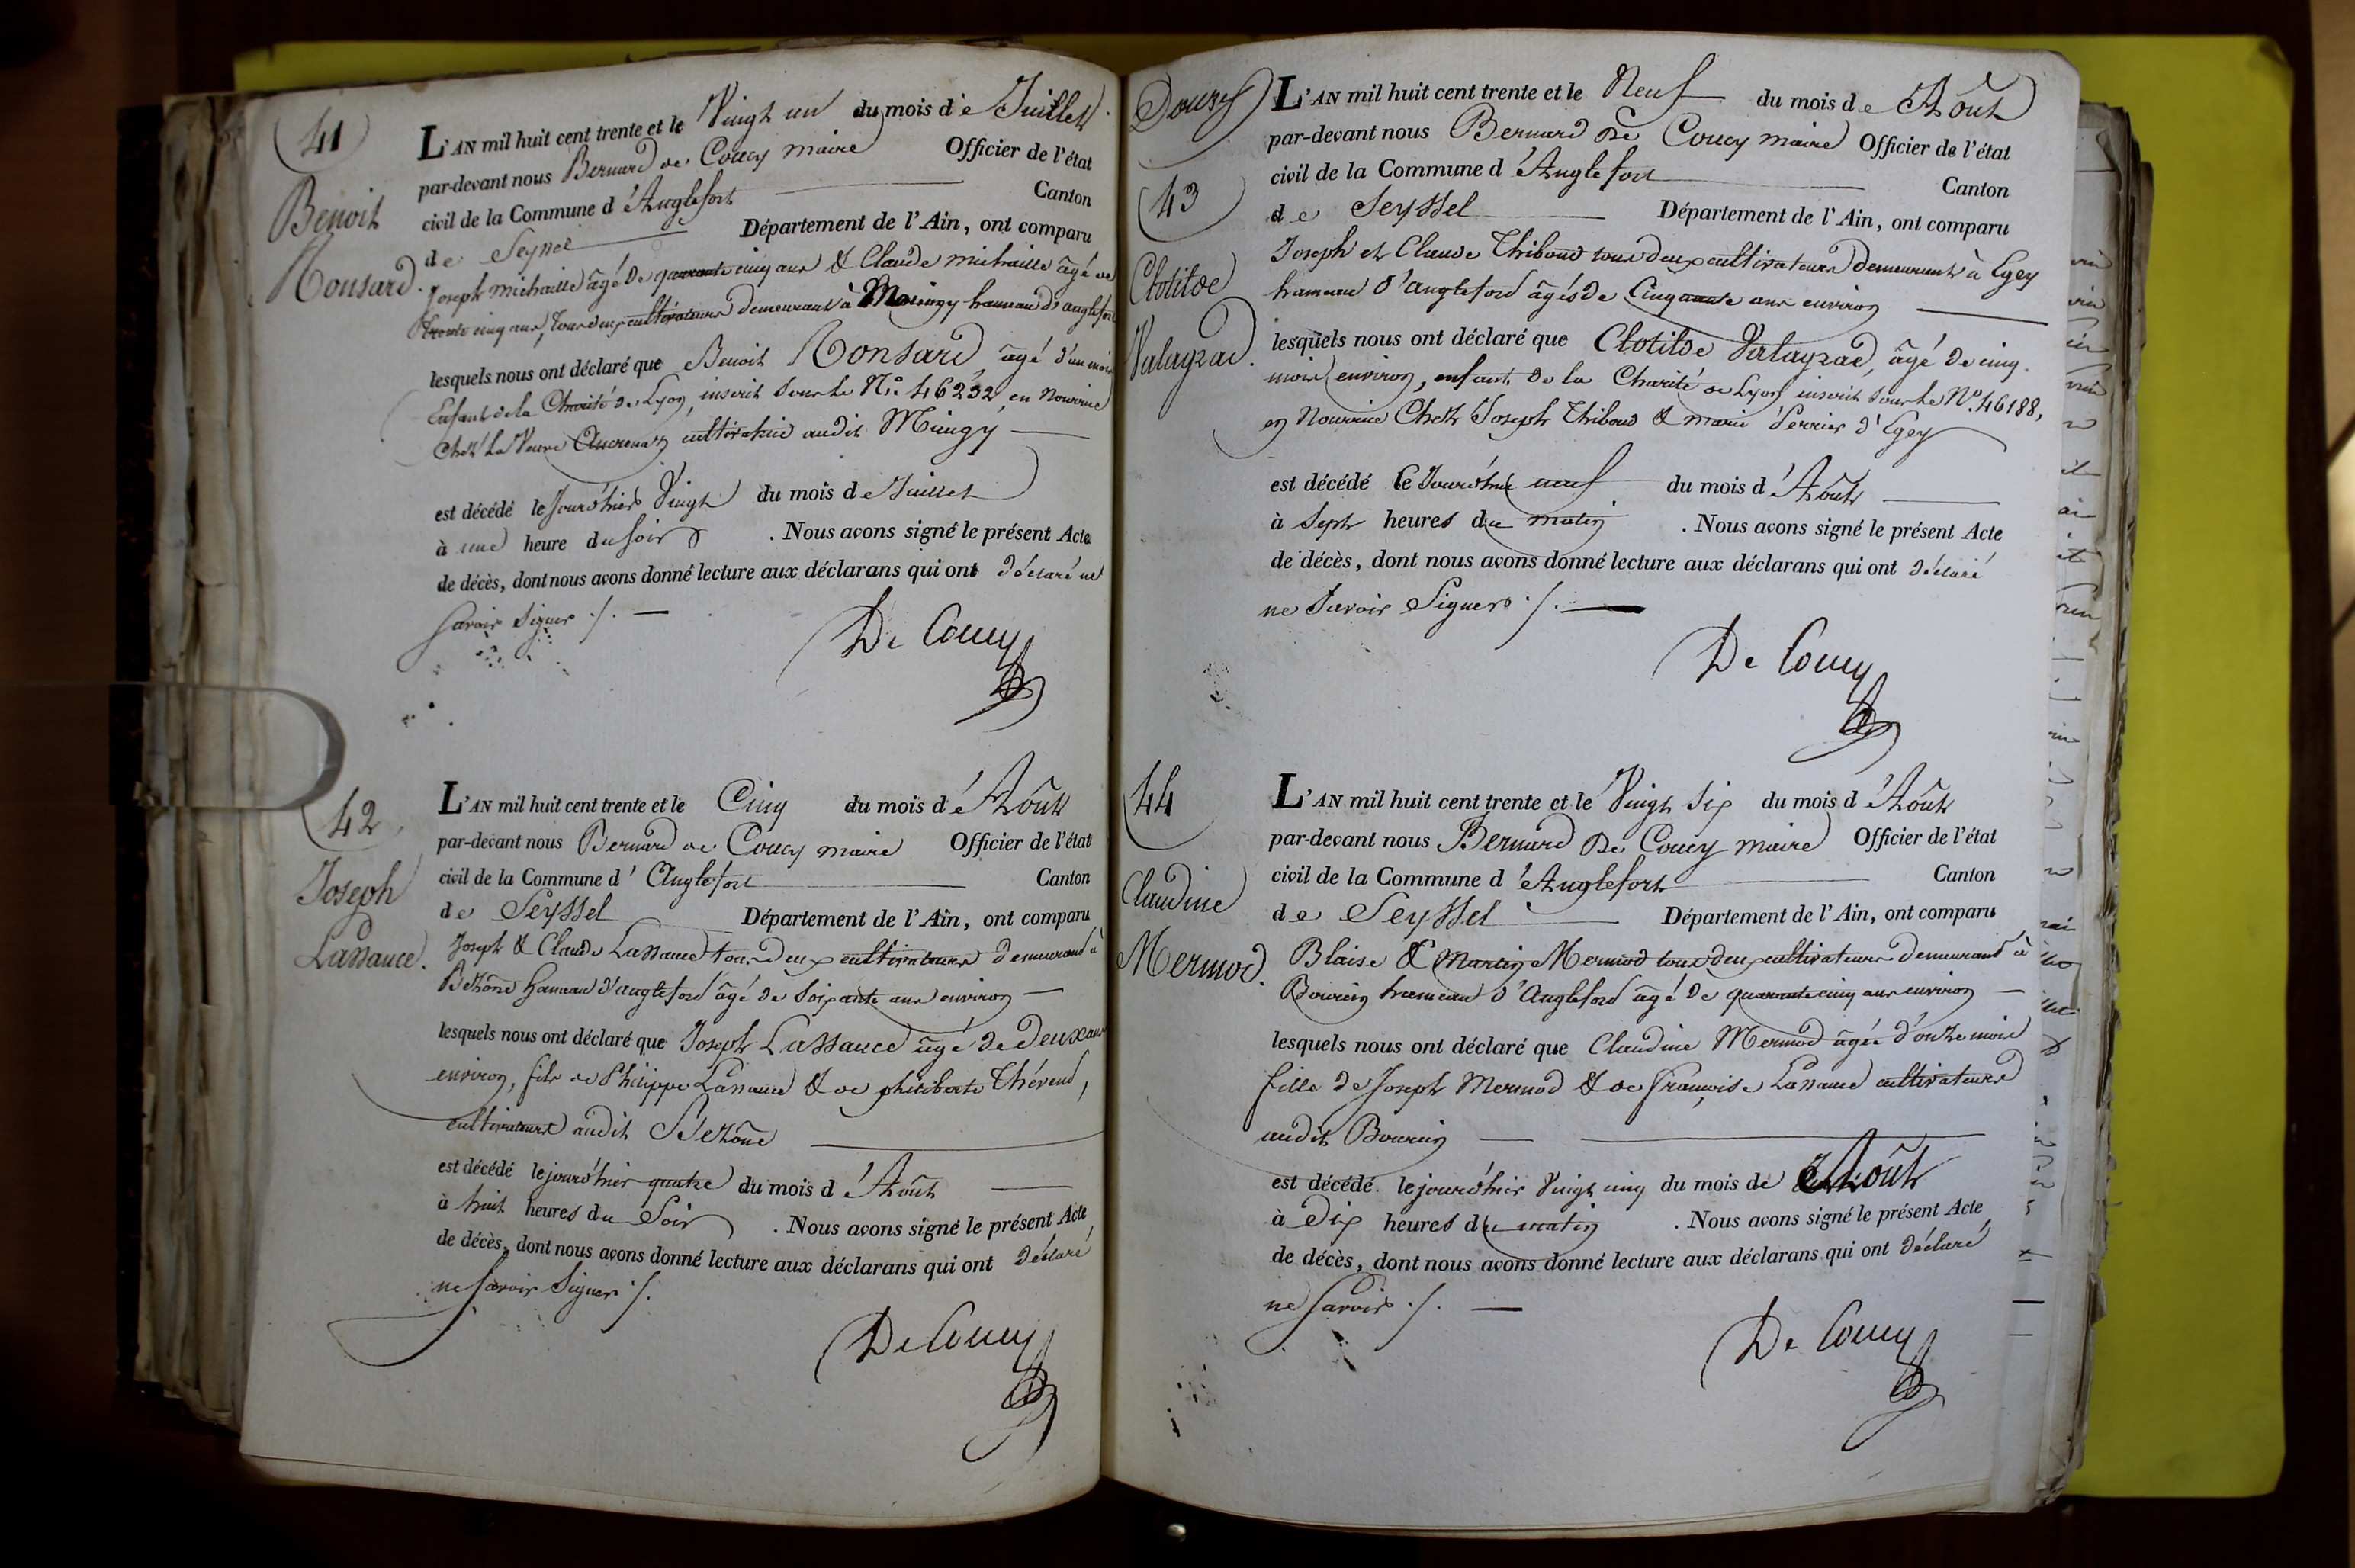 41
Benoit
Ronsard.
L'AN mil huit cent trente et le Vingt un du mois de Juillet
par-devant nous Bernard de Coucy maire Officier de l'état
civil de la Commune d'Anglefort Canton
de Seyssel Département de l'Ain, ont comparu
Joseph michaille âgé de quarante cinq ans & Claude michaille âgé de
trente cinq ans, tous deux cultivateurs demeurant à hameau d'anglefort
lesquels nous ont déclaré que Benoit Ronsard, âgé d'un mois
Enfant de la Charité de Lyon, inscrit sous le No. 46232, en Nourrice
Chez la Veuve cultivatrice audit Miugy
est décédé le jourd'hier Vingt du mois de Juillet
à une heure du soir . Nous avons signé le présent Acte
de décès, dont nous avons donné lecture aux déclarans qui ont déclaré ne
savoir signer ./.
De Coucy
42
Joseph
Lassauce.
L'AN mil huit cent trente et le Cinq du mois d'Août
par-devant nous Bernard de Coucy maire Officier de l'état
civil de la Commune d'Anglefort Canton
de Seyssel Département de l'Ain, ont comparu
Joseph & Claude Lassauce tous deux cultivateurs demeurant à
hameau d'angleford âgé de soixante ans environ
lesquels nous ont déclaré que Joseph Lassauce âgé de deux ans
environ, fils de Philippe Lassauce & de philiberte Thévend,
cultivateurs audit
est décédé le jourd'hier quatre du mois d'Août
à huit heures du Soir . Nous avons signé le présent Acte
de décès, dont nous avons donné lecture aux déclarans qui ont déclaré
ne savoir signer ./.
De Coucy
Douze
43
Clotilde
Valayzad.
L'AN mil huit cent trente et le Neuf du mois de Août
par-devant nous Bernard De Coucy maire Officier de l'état
civil de la Commune d'Anglefort Canton
de Seyssel Département de l'Ain, ont comparu
Joseph et Claude Thiboud tous deux cultivateurs demeurant à Egey
hameau d'angleford âgés de Cinquante ans environ
lesquels nous ont déclaré que Clotilde Valayzad, âgé de cinq
mois environ, enfant de la Charité de Lyon inscrit sous le No. 46188,
en Nourrice Chez Joseph Thiboud & marie Perrier d'Egey
est décédé Ce Jourd'hui neuf du mois d'Août
à Sept heures du matin . Nous avons signé le présent Acte
de décès, dont nous avons donné lecture aux déclarans qui ont déclaré
ne Savoir Signer ./.
De Coucy
44
Claudine
Mermod.
L'AN mil huit cent trente et le Vingt Six du mois d'Août
par-devant nous Bernard De Coucy maire Officier de l'état
civil de la Commune d'Anglefort Canton
de Seyssel Département de l'Ain, ont comparu
Blaise & Martin Mermod tous deux cultivateurs demeurant à
Bourcin hameau d'Angleford âgé de quarante cinq ans environ
lesquels nous ont déclaré que Claudine Mermod âgée d'onze mois
fille de Joseph Mermod & de françoise Lassauce cultivateurs
audit Bourcin
est décédé le jourd'hier Vingt cinq du mois de Août
à Dix heures du matin . Nous avons signé le présent Acte
de décès, dont nous avons donné lecture aux déclarans qui ont déclaré
ne savoir ./.
De Coucy